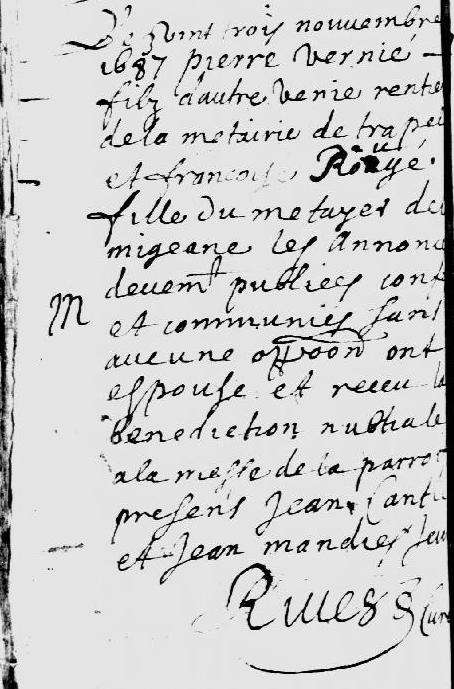 Le vint trois novvembre
1687 pierre vernié
filz d'autre venie rente
de la metairie de trapei
et francoise Rouyé
fille du metayer de
migeane les annonc
devemt publiees conf
M et communies sans
aucune oppoon ont
espouse et receu l
benediction nubtiale
a la messe de la parro
presens Jean Canti
et Jean mandies
Rives Cure